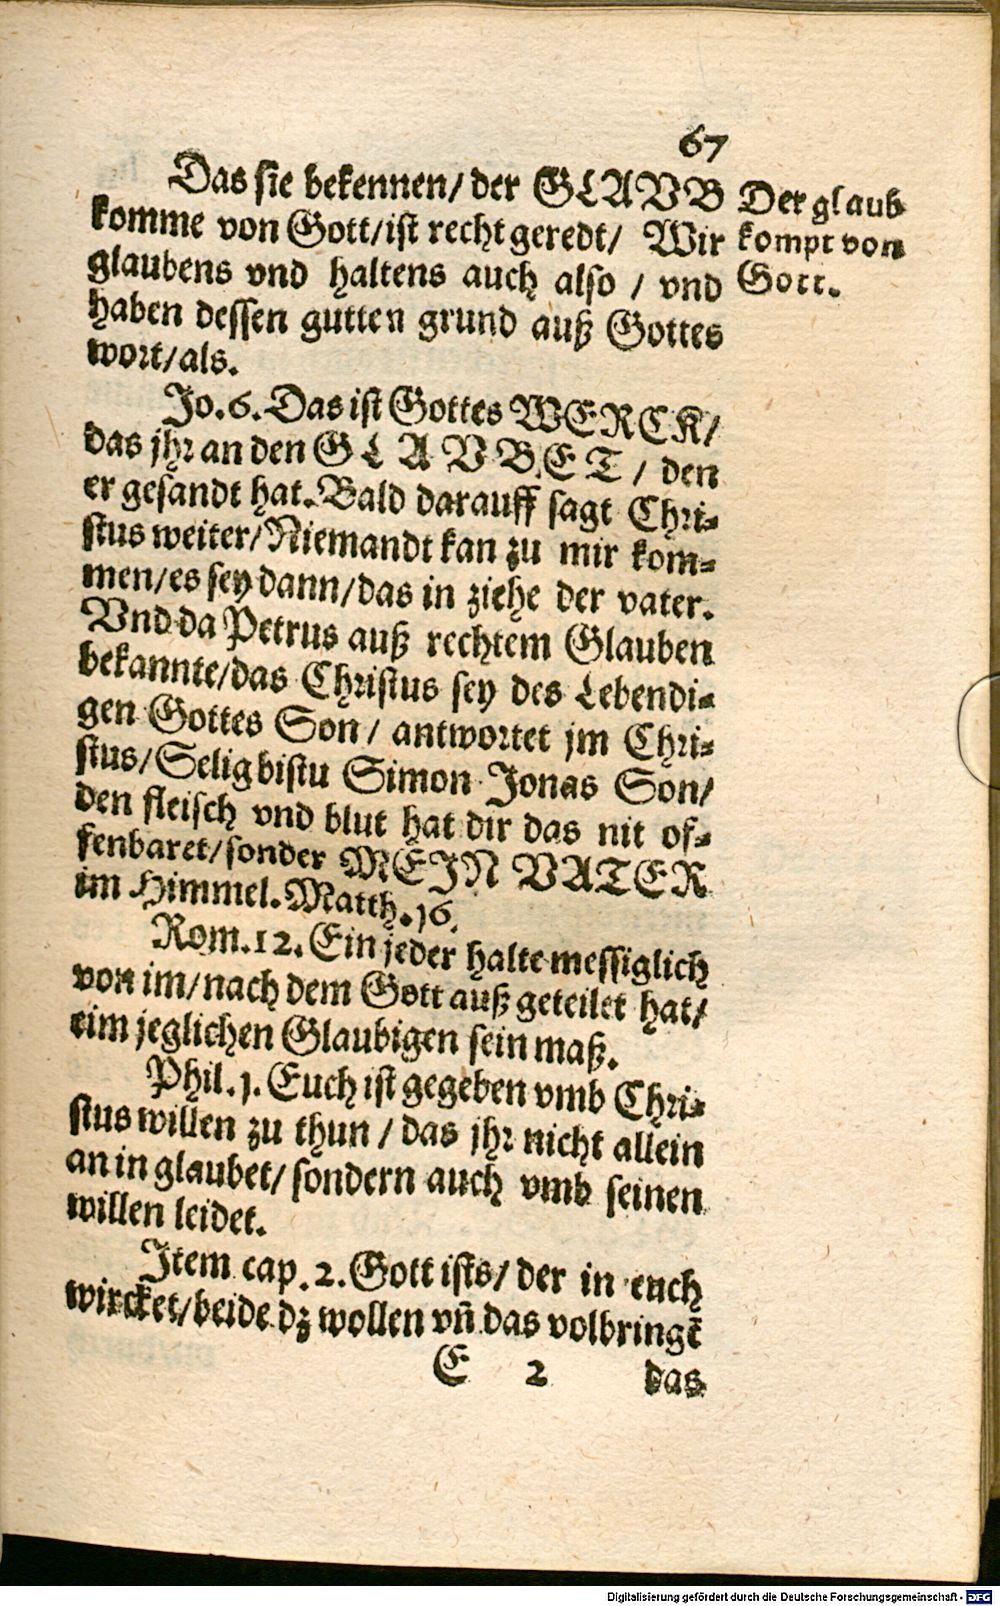 67
Das sie bekennen/ der GLAVB
komme von Gott/ist recht geredt/ Wir
glaubens vnd haltens auch also / vnd
haben dessen gutten grund auß Gottes
wort/als.
Der glaub
kompt von
Gott.
Jo. 6. Das ist Gottes WERCK/
das jhr an den GLAVBET / den
er gesandt hat. Bald darauff sagt Chri-
stus weiter/Niemandt kan zu mir kom-
men/es sey dann/das in ziehe der vater.
Vnd da Petrus auß rechtem Glauben
bekannte/das Christus sey des Lebendi-
gen Gottes Son/ antwortet jm Chri-
stus/Selig bistu Simon Jonas Son/
den fleisch vnd blut hat dir das nit of-
fenbaret/sonder MEIN VATER
im Himmel. Matth. 16.
Rom. 12. Ein jeder halte messiglich
von im/nach dem Gott auß geteilet hat/
eim jeglichen Glaubigen sein maß.
Phil. 1. Euch ist gegeben vmb Chri-
stus willen zu thun / das jhr nicht allein
an in glaubet/ sondern auch vmb seinen
willen leidet.
Item cap. 2. Gott ists/ der in euch
wircket/beide dz wollen vñ das volbringē
E 2 das
Digitalisierung gefördert durch die Deutsche Forschungsgemeinschaft - DFG